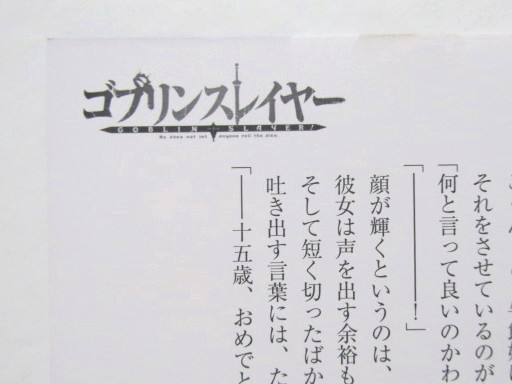 ゴブリンスレイヤー
GOBLIN SLAYER!
He does not let anyone roll the dice.
それをさせているのが
「何と言って良いのかわ
「――――！」
顔が輝くというのは、
彼女は声を出す余裕も
そして短く切ったばか
吐き出す言葉には、た
「――十五歳、おめでと